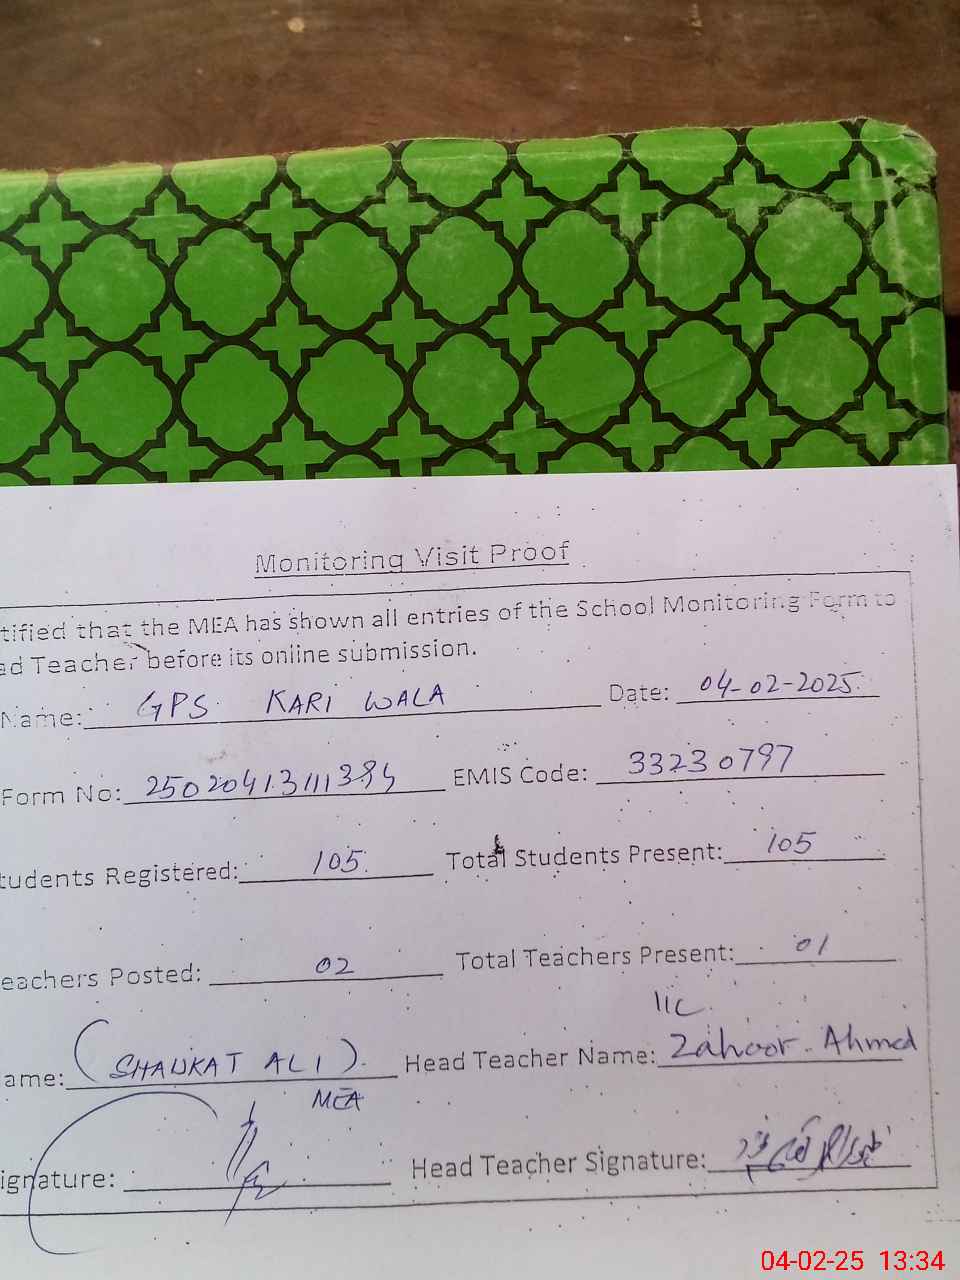 Monitoring Visit Proof
tified that the MEA has shown all entries of the School Monitoring Form to
ad Teacher before its online submission.
Name: GPS KARI WALA Date: 04-02-2025
Form No: EMIS Code: 33230797
tudents Registered: 105 Total Students Present: 105
eachers Posted: 02 Total Teachers Present: 01
I/C
ame: (SHAUKAT ALI) Head Teacher Name: Zahoor Ahmed
MEA
ignature: Head Teacher Signature:
04-02-25 13:34